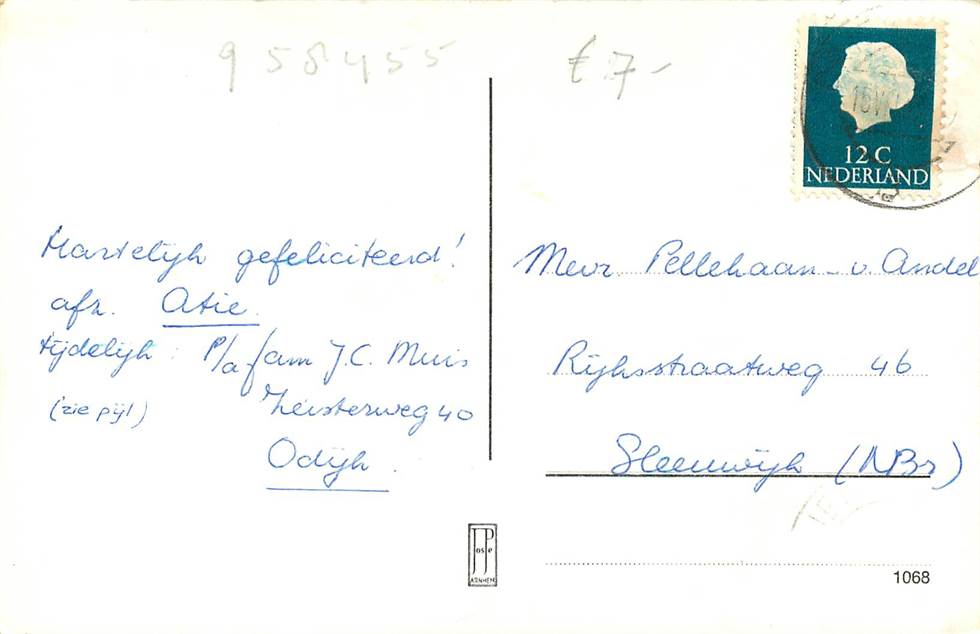 958455
€ 7,-
12 C
NEDERLAND
Hartelijk gefeliciteerd!
afz. Atie.
tijdelijk: P/a fam J.C. Muis
(zie pijl) Zeisterweg 40
Odijk.
Mevr. Pellekaan - v. Andel
Rijksstraatweg 46
Sleeuwijk (NBr)
ARNHEM
1068